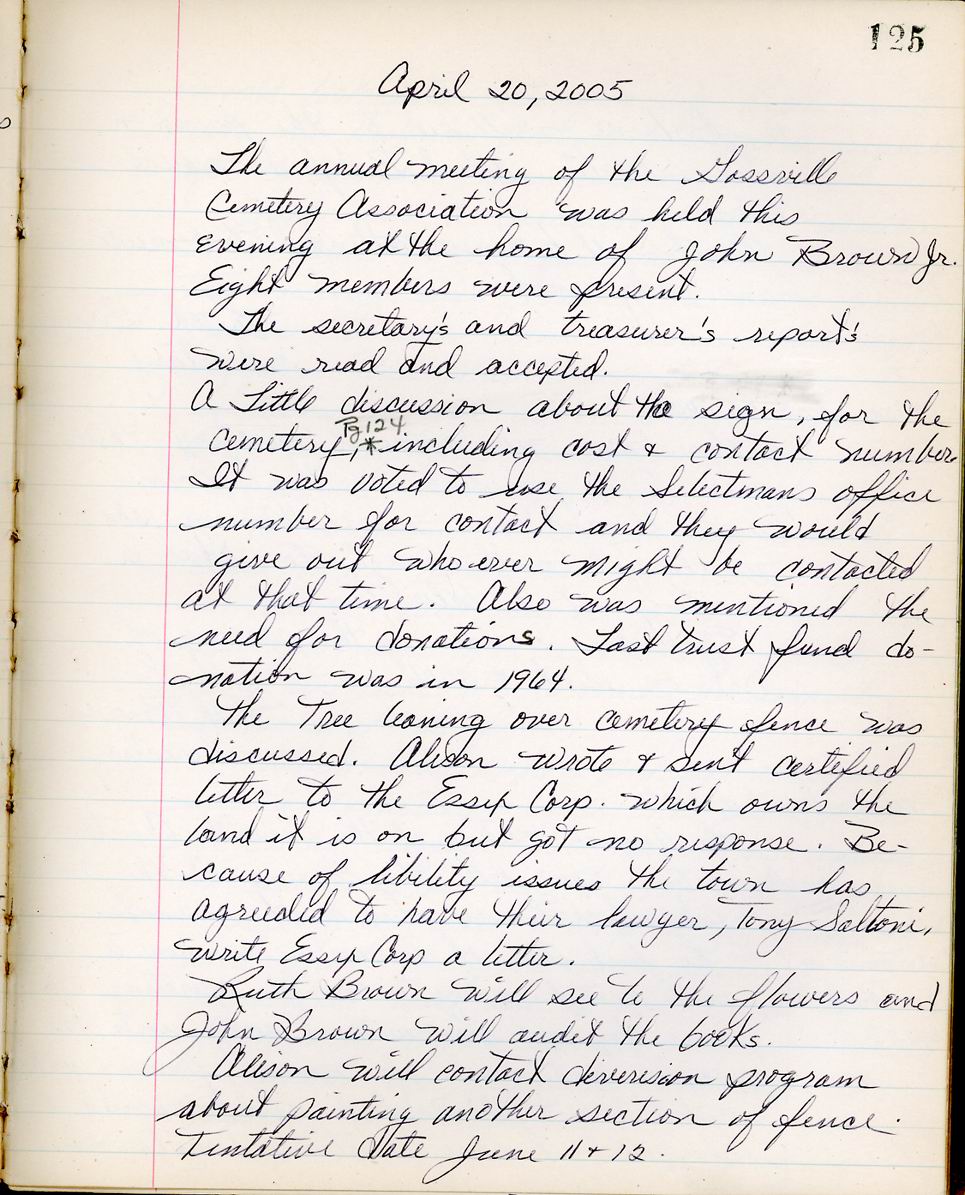 125
April 20, 2005
The annual meeting of the Gossville
Cemetery Association was held this
evening at the home of John Brown Jr.
Eight members were present.
The secretary's and treasurer's report's
were read and accepted.
A little discussion about the sign, for the
Pg 124.
cemetery,* including cost & contact number.
It was voted to use the Selectmans office
number for contact and they would
give out who ever might be contacted
at that time. Also was mentioned the
need for donations. Last trust fund do-
nation was in 1964.
The Tree leaning over cemetery fence was
discussed. Alison wrote & sent certified
letter to the Essex Corp. which owns the
land it is on but got no response. Be-
cause of libility issues the town has
agreeded to have their lawyer, Tony Soltoni,
write Essex Corp a letter.
Ruth Brown will see to the flowers and
John Brown will audit the books.
Alison will contact diverision program
about painting another section of fence.
Tentative date June 11 & 12.